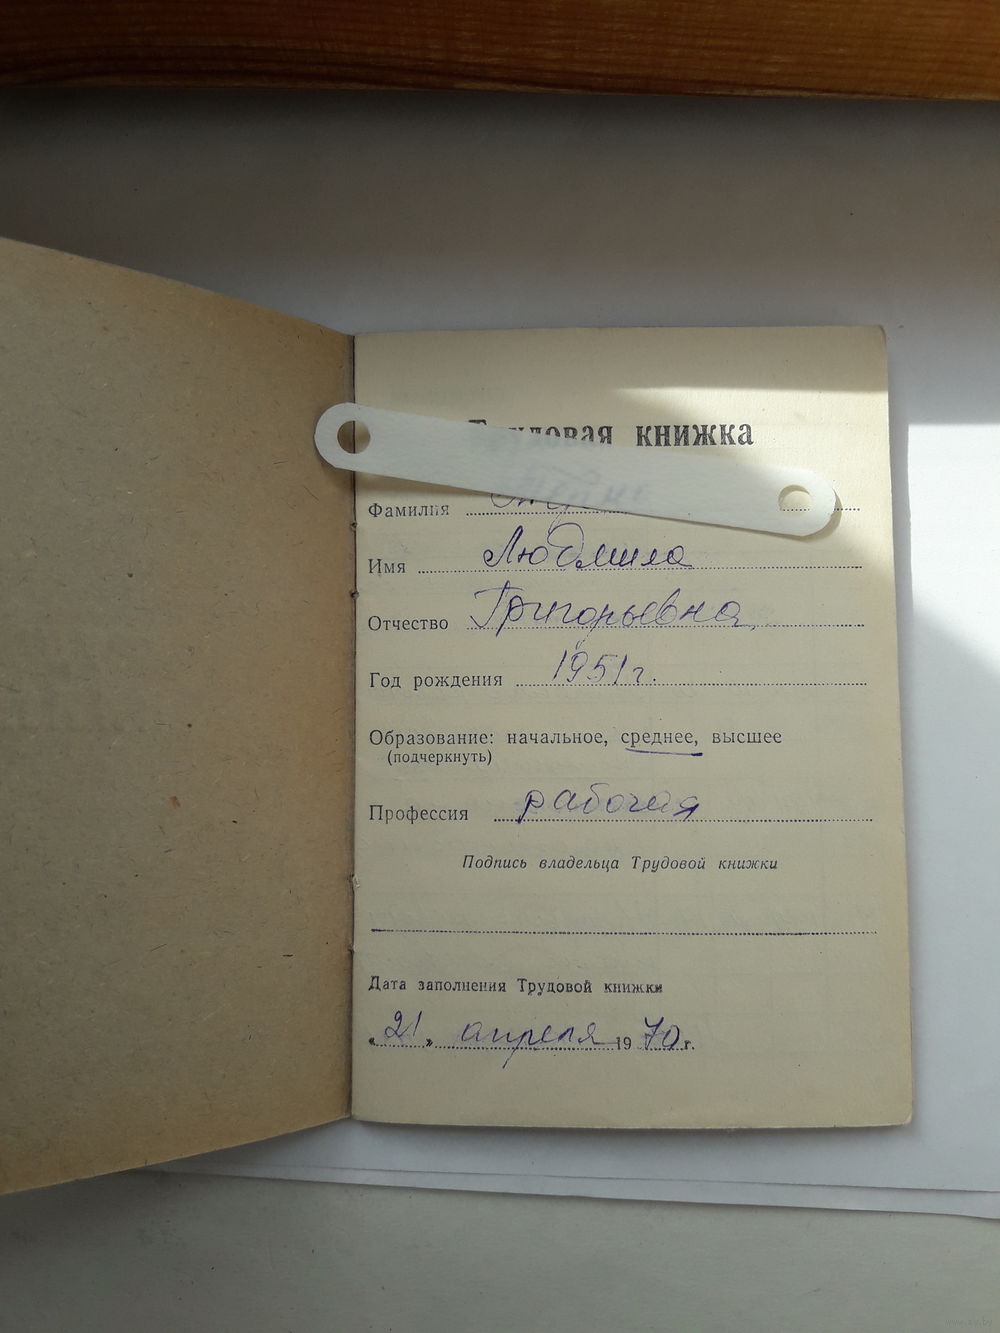 Трудовая книжка
Фамилия
Имя Людмила
Отчество Григорьевна
Год рождения 1951 г.
Образование: начальное, среднее, высшее
(подчеркнуть)
Профессия рабочая
Подпись владельца Трудовой книжки
Дата заполнения Трудовой книжки
«21» апреля 1970 г.